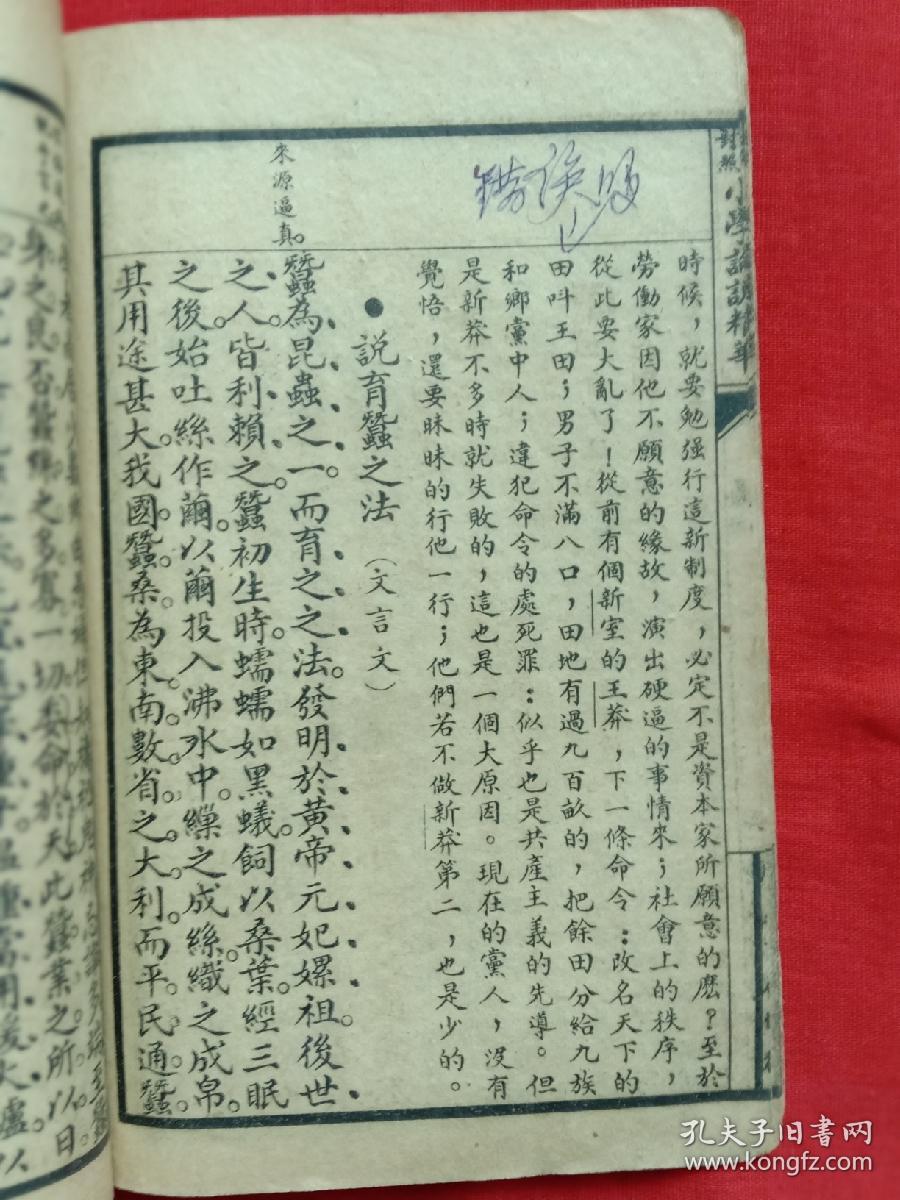 對照
小學論說精華
時候，就要勉强行這新制度，必定不是資本家所願意的麽？至於
勞働家因他不願意的緣故，演出硬逼的事情來；社會上的秩序，
從此要大亂了！從前有個新室的王莽，下一條命令：改名天下的
田叫王田；男子不滿八口，田地有過九百畝的，把餘田分給九族
和鄉黨中人；違犯命令的處死罪：似乎也是共產主義的先導。但
是新莽不多時就失敗的，這也是一個大原因。現在的黨人，沒有
覺悟，還要昧昧的行他一行；他們若不做新莽第二，也是少的。
●說育蠶之法（文言文）
來源逼真。
蠶為昆蟲之一。而育之之法。發明於黃帝元妃嫘祖。後世
之人。皆利賴之。蠶初生時。蠕蠕如黑蟻。飼以桑葉。經三眠
之後。始吐絲作繭。以繭投入沸水中。繅之成絲。織之成帛。
其用途甚大。我國蠶桑。為東南數省之大利。而平民通蠶
身之良否。蠶繭之多寡。一切委命於天。此蠶業之所以日
孔夫子旧书网
kongfz.com